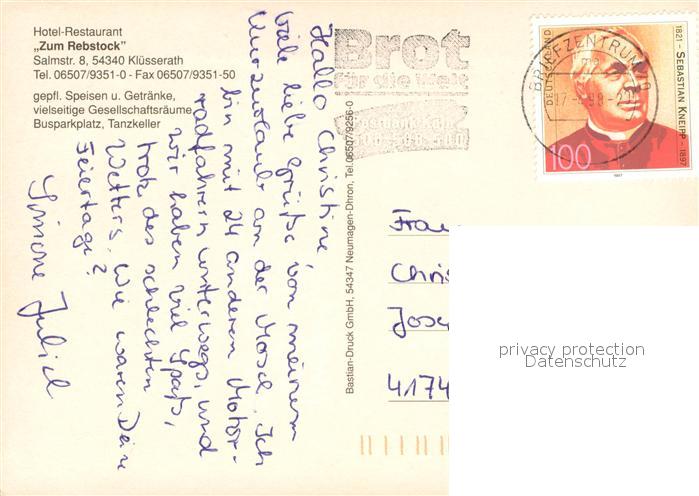 Hotel-Restaurant
„Zum Rebstock"
Salmstr. 8, 54340 Klüsserath
Tel. 06507/9351-0 - Fax 06507/9351-50
gepfl. Speisen u. Getränke,
vielseitige Gesellschaftsräume
Busparkplatz, Tanzkeller
Hallo Christine!
Viele liebe Grüße von meinem
Kurzurlaub an der Mosel. Ich
bin mit 24 anderen Motor-
radfahrern unterwegs, und
wir haben viel Spaß,
trotz des schlechten
Wetters. Wie waren Deine
Feiertage?
Simone
Bastian-Druck GmbH, 54347 Neumagen-Dhron, Tel. 06507/9256-0
Brot
für die Welt
BRIEFZENTRUM
DEUTSCHLAND
100
1821 - SEBASTIAN KNEIPP - 1897
1997
Frau
Chris
Jose
4174
privacy protection
Datenschutz